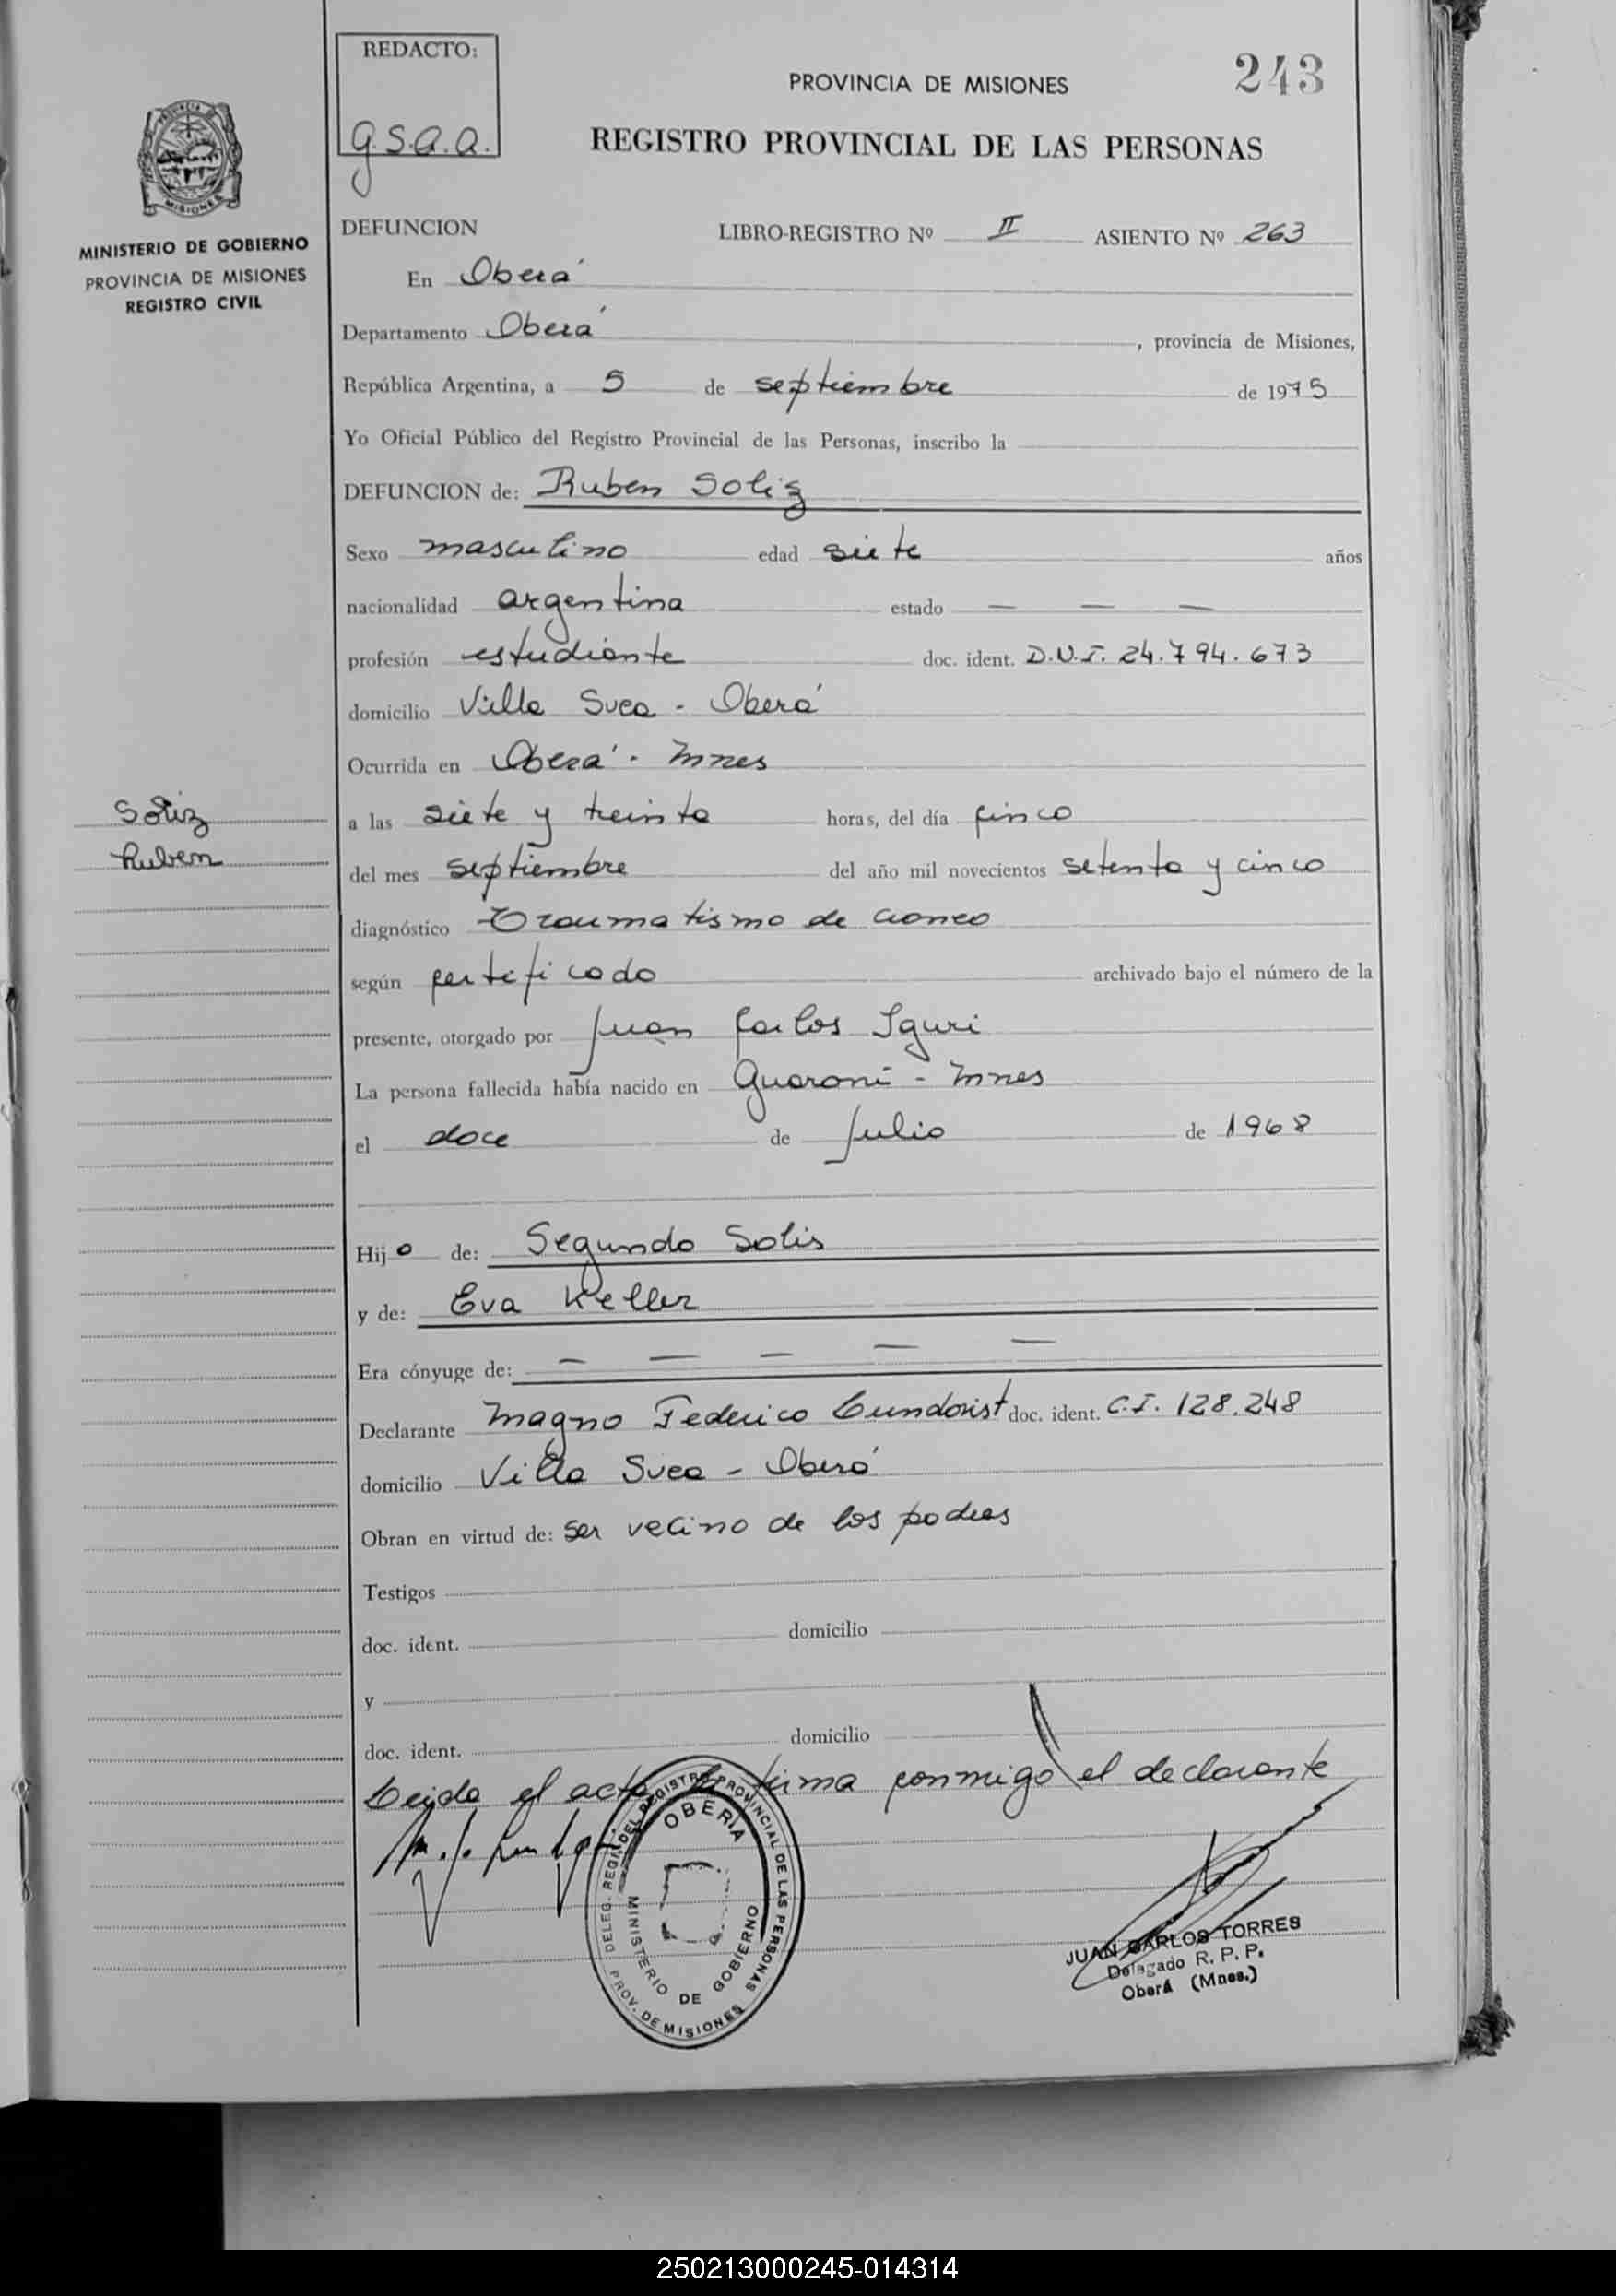 REDACTO:
g.s.a.a.
243
PROVINCIA DE MISIONES
REGISTRO PROVINCIAL DE LAS PERSONAS
MISIONES
MINISTERIO DE GOBIERNO
PROVINCIA DE MISIONES
REGISTRO CIVIL
DEFUNCION LIBRO-REGISTRO Nº II ASIENTO Nº 263
En Oberá
Departamento Oberá, provincia de Misiones,
República Argentina, a 5 de septiembre de 1975
Yo Oficial Público del Registro Provincial de las Personas, inscribo la
DEFUNCION de: Ruben Soliz
Sexo masculino edad siete años
nacionalidad argentina estado — — —
profesión estudiante doc. ident. D.N.I. 24.794.673
domicilio Villa Svea - Oberá
Ocurrida en Oberá - Mnes
Soliz
Ruben
a las siete y treinta horas, del día cinco
del mes septiembre del año mil novecientos setenta y cinco
diagnóstico Traumatismo de craneo
según certificado archivado bajo el número de la
presente, otorgado por Juan Carlos Iguri
La persona fallecida había nacido en Guaraní - Mnes
el doce de Julio de 1968
Hijo de: Segundo Solis
y de: Eva Keller
Era cónyuge de: — — — — —
Declarante Magno Federico Lundqvist doc. ident. C.I. 128.248
domicilio Villa Svea - Oberá
Obran en virtud de: ser vecino de los padres
Testigos
doc. ident. domicilio
y
doc. ident. domicilio
Leida el acta la firma conmigo el declarante
DELEG. REGIONAL DEL REGISTRO PROVINCIAL DE LAS PERSONAS
OBERA
MINISTERIO DE GOBIERNO
PROV. DE MISIONES
JUAN CARLOS TORRES
Delegado R. P. P.
Oberá (Mnes.)
250213000245-014314